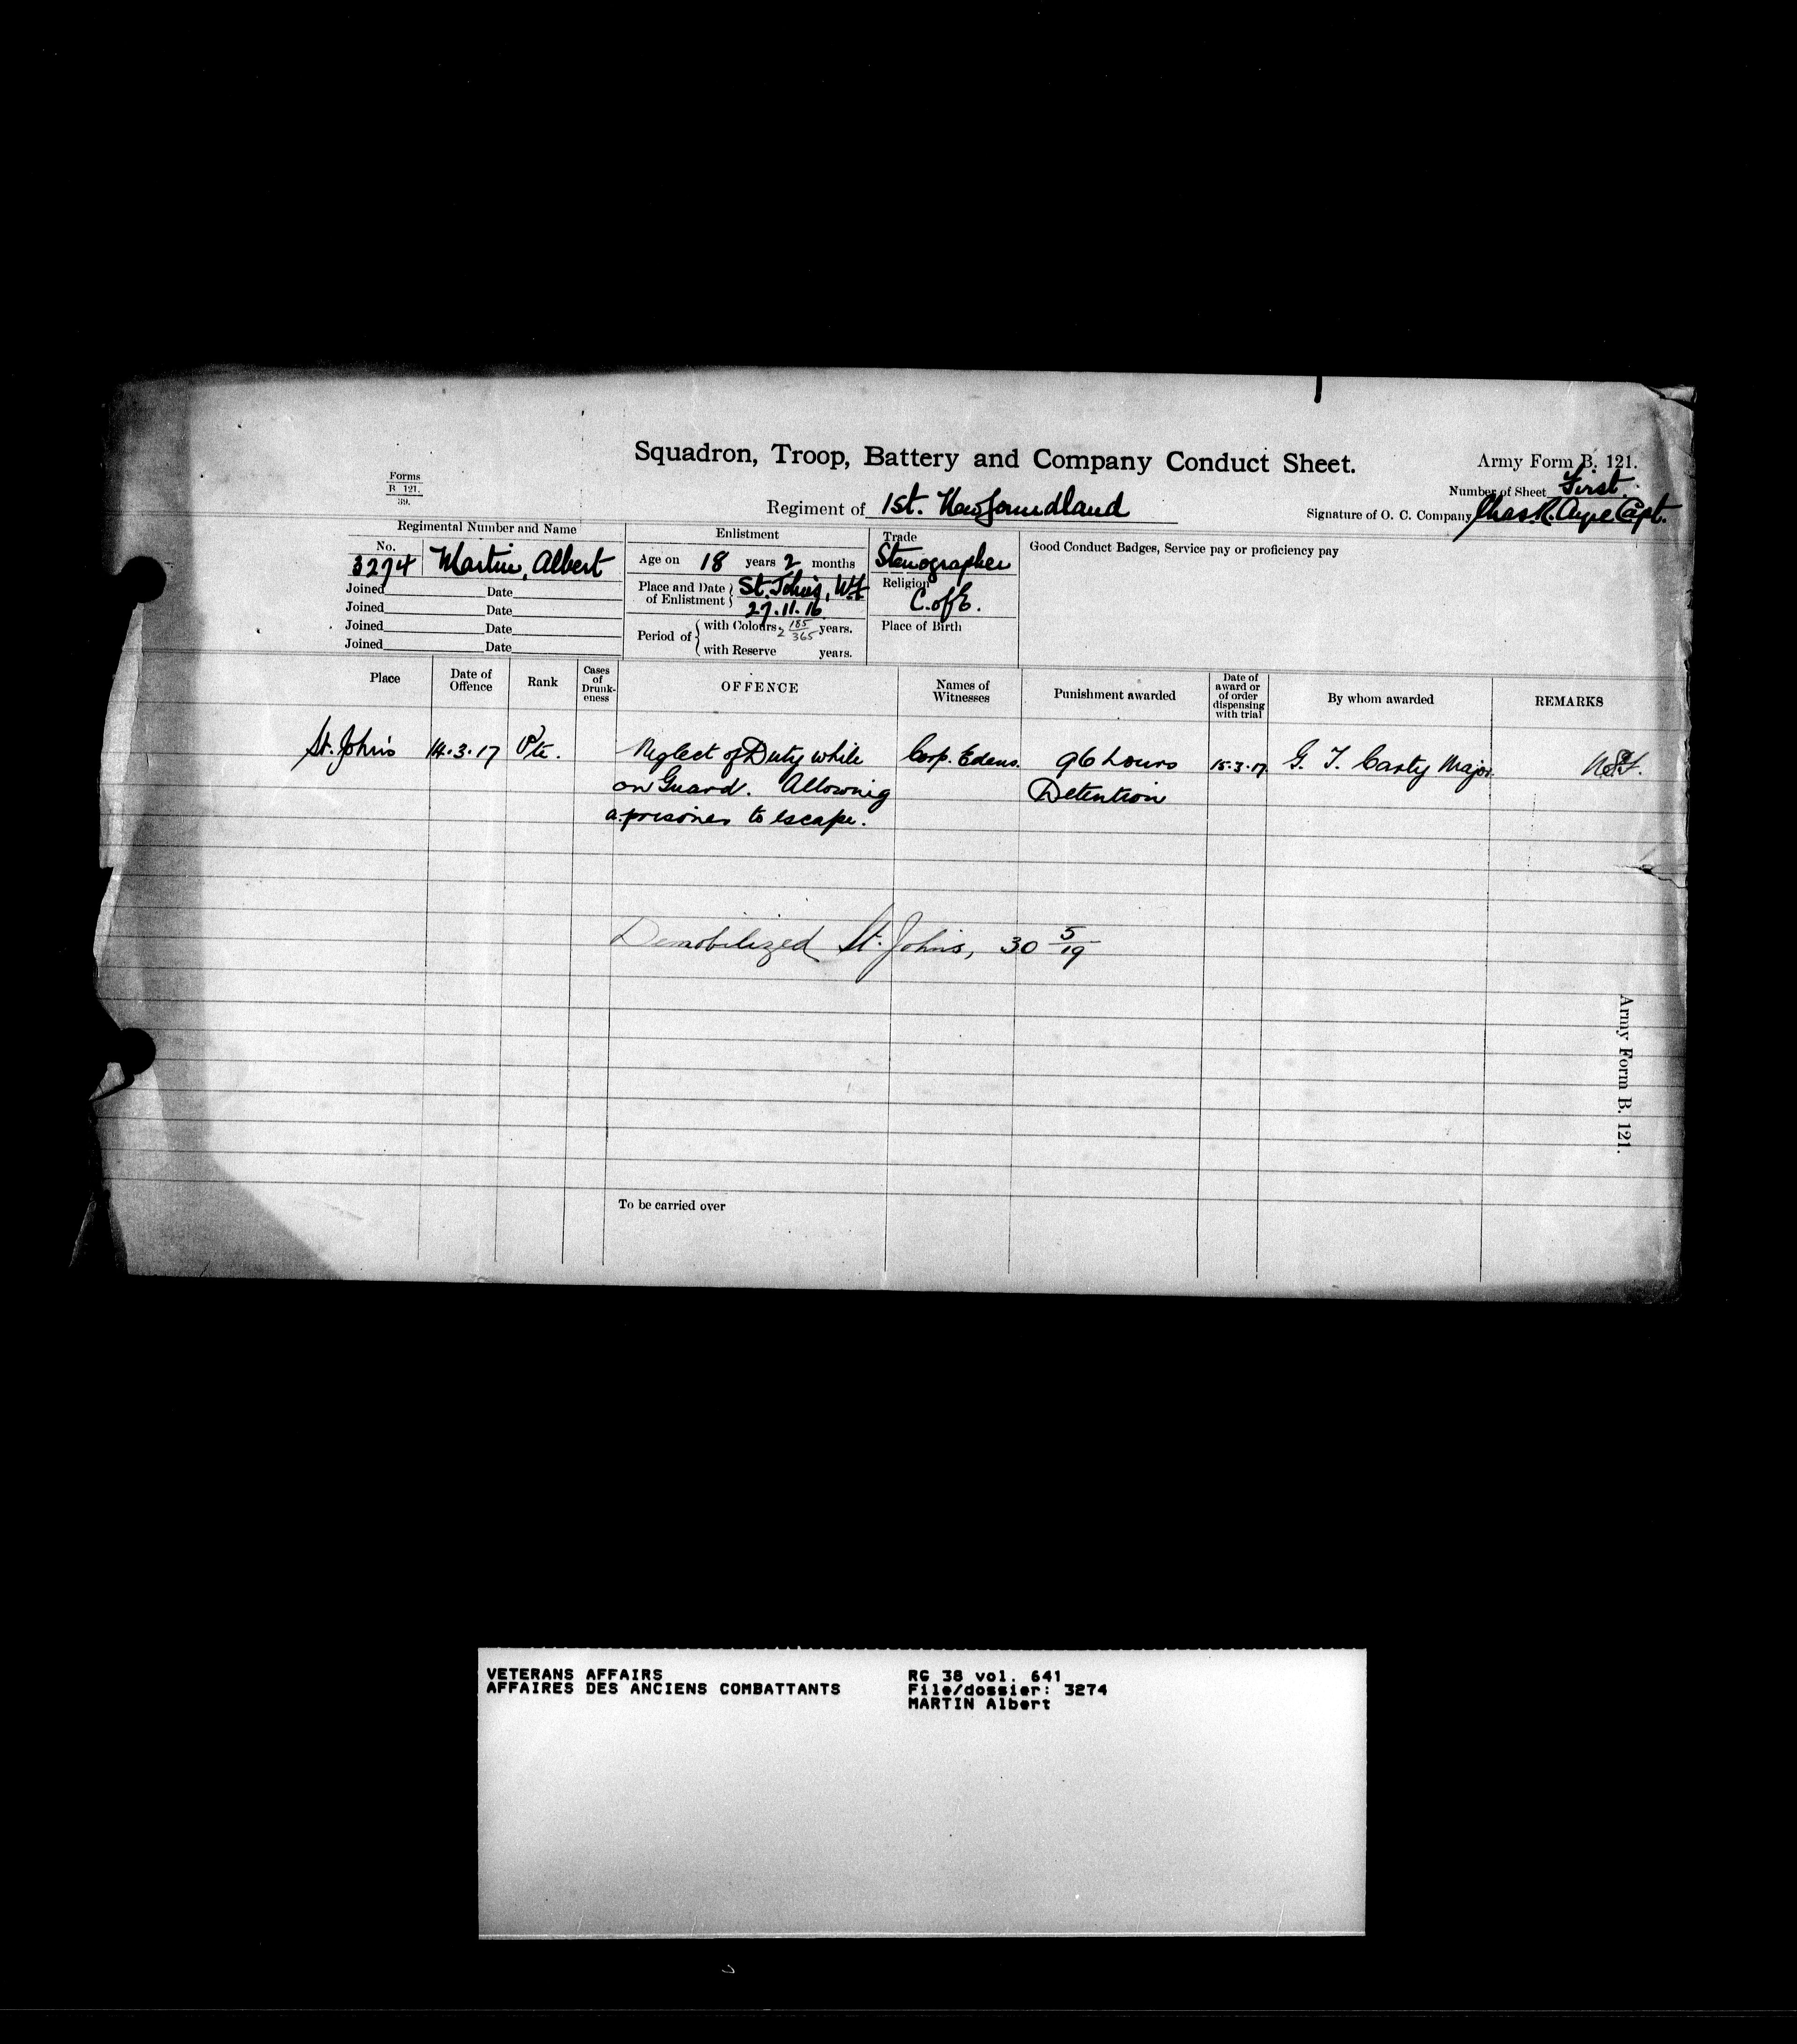 Squadron, Troop, Battery and Company Conduct Sheet.
Army Form B. 121.
Forms
B 121.
39.
Number of Sheet First.
Regiment of 1st. Newfoundland
Signature of O. C. Company Chas. R. Ayre Capt.
Regimental Number and Name
Enlistment
Trade
Good Conduct Badges, Service pay or proficiency pay
No.
3274 Martin, Albert
Age on 18 years 2 months
Stenographer
Joined Date
Place and Date of Enlistment } St. John's, Nfd
27.11.16
Religion
C. of E.
Joined Date
Joined Date
Period of { with Colours 2 185/365 years.
Place of Birth
Joined Date
with Reserve years.
Place
Date of Offence
Rank
Cases of Drunk-eness
OFFENCE
Names of Witnesses
Punishment awarded
Date of award or of order dispensing with trial
By whom awarded
REMARKS
St. John's 14.3.17 Pte. Neglect of Duty while Corp. Edens. 96 hours 15.3.17 G. T. Carty Major.
on Guard. Allowing Detention
a prisoner to escape.
Demobilized St. John's, 30 5/19
Army Form B. 121.
To be carried over
VETERANS AFFAIRS RG 38 vol. 641
AFFAIRES DES ANCIENS COMBATTANTS File/dossier: 3274
MARTIN Albert